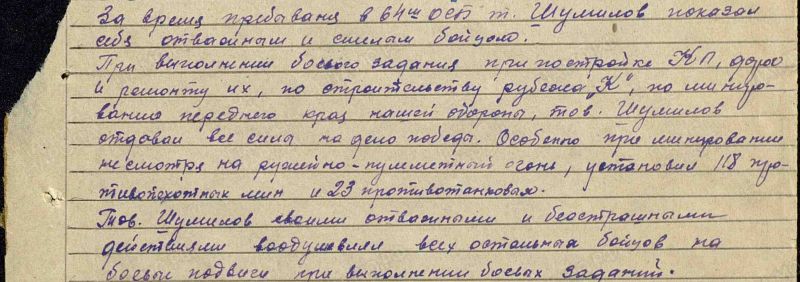 За время пребываня в 64ом ОСБ т. Шумилов показал
себя отважным и смелым бойцом.
При выполнении боевого задания при постройке КП, дорог
и ремонту их, по строительству рубежа „К", по миниро-
ванию переднего края нашей обороны, тов. Шумилов
отдавал все силы на дело победы. Особенно при минировании
несмотря на ружейно-пулеметный огонь, установил 118 про-
тивопехотных мин и 23 противотанковых.
Тов. Шумилов своими отважными и бесстрашными
действиями воодушевлял всех остальных бойцов на
боевые подвиги при выполнении боевых заданий.